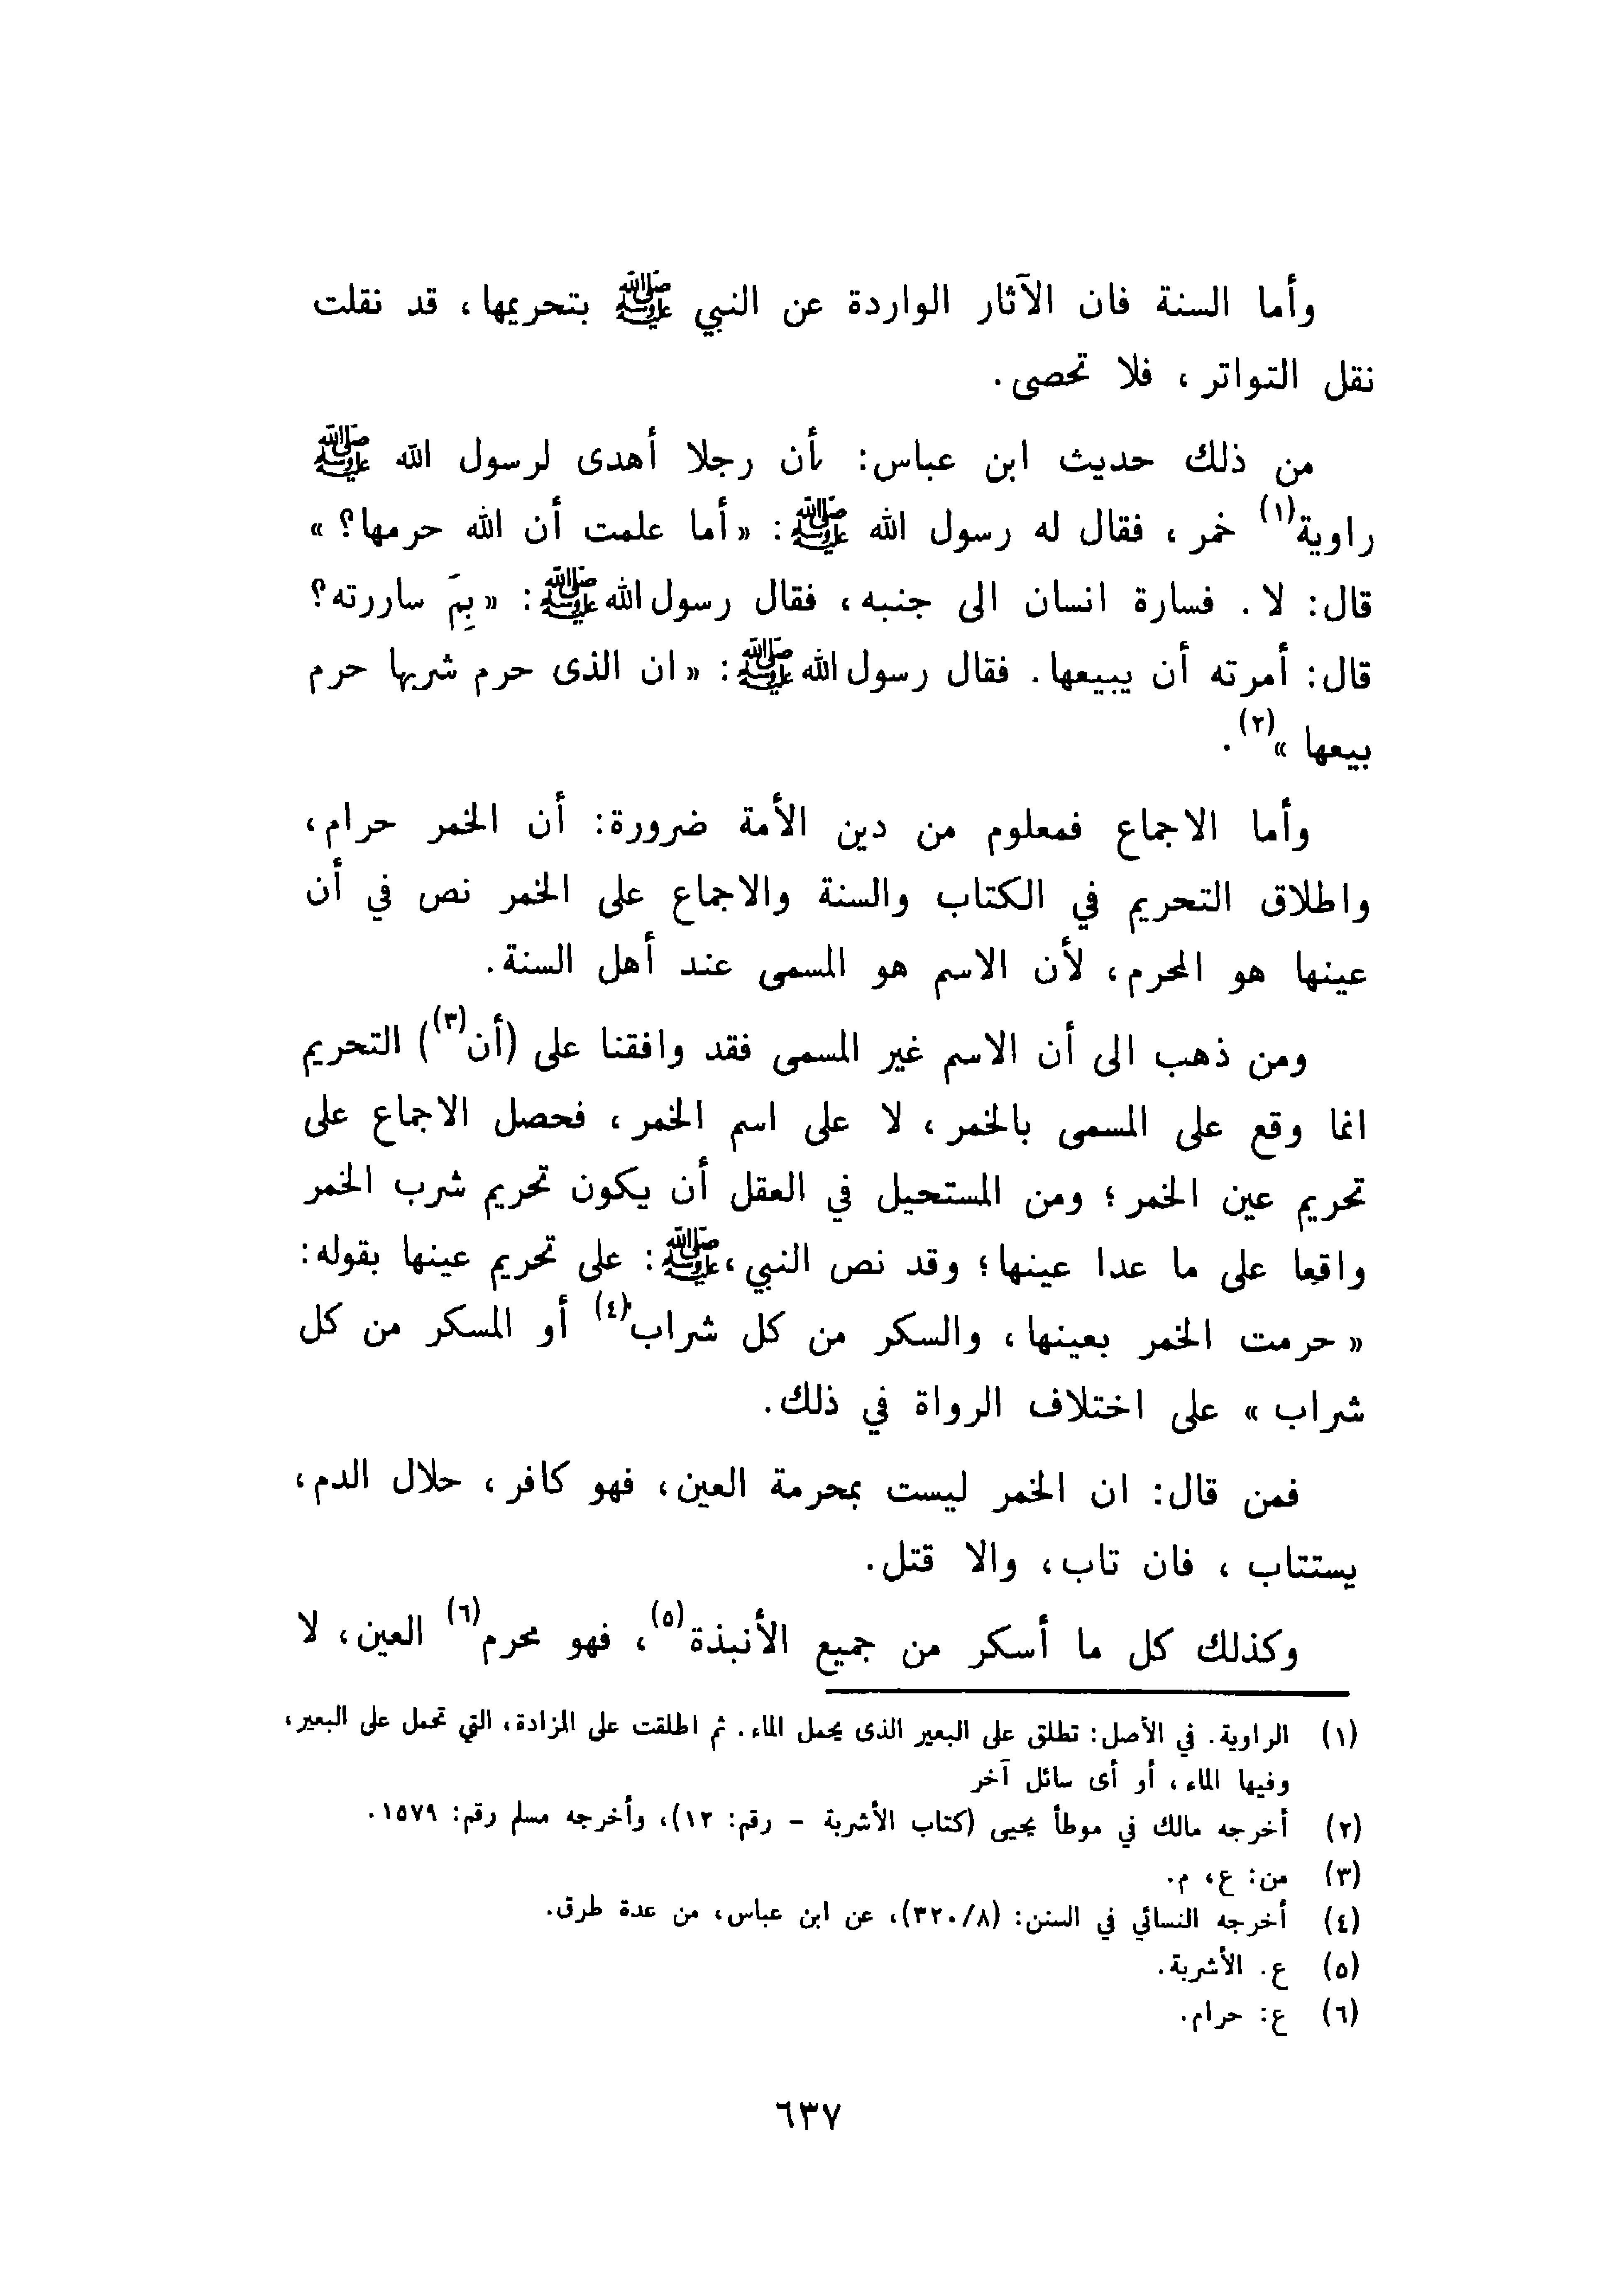 وأما السنة فان الآثار الواردة عن النبي ﷺ بتحريمها، قد نقلت
نقل التواتر، فلا تحصى.
من ذلك حديث ابن عباس: أن رجلا أهدى لرسول الله ﷺ
راوية(١) خمر، فقال له رسول الله ﷺ: «أما علمت أن الله حرمها؟»
قال: لا. فسارة انسان الى جنبه، فقال رسول الله ﷺ: «بِمَ ساررته؟
قال: أمرته أن يبيعها. فقال رسول الله ﷺ: «ان الذى حرم شربها حرم
بيعها»(٢).
وأما الاجماع فمعلوم من دين الأمة ضرورة: أن الخمر حرام،
واطلاق التحريم في الكتاب والسنة والاجماع على الخمر نص في أن
عينها هو المحرم، لأن الاسم هو المسمى عند أهل السنة.
ومن ذهب الى أن الاسم غير المسمى فقد وافقنا على (أن(٣)) التحريم
انما وقع على المسمى بالخمر، لا على اسم الخمر، فحصل الاجماع على
تحريم عين الخمر؛ ومن المستحيل في العقل أن يكون تحريم شرب الخمر
واقعا على ما عدا عينها؛ وقد نص النبي، ﷺ: على تحريم عينها بقوله:
«حرمت الخمر بعينها، والسكر من كل شراب(٤) أو المسكر من كل
شراب» على اختلاف الرواة في ذلك.
فمن قال: ان الخمر ليست بمحرمة العين، فهو كافر، حلال الدم،
يستتاب، فان تاب، والا قتل.
وكذلك كل ما أسكر من جميع الأنبذة(٥)، فهو محرم(٦) العين، لا
(١) الراوية. في الأصل: تطلق على البعير الذى يحمل الماء. ثم اطلقت على المزادة، التي تحمل على البعير،
وفيها الماء، أو أى سائل آخر
(٢) أخرجه مالك في موطأ يحيى (كتاب الأشربة - رقم: ١٢)، وأخرجه مسلم رقم: ١٥٧٩.
(٣) من: ع، م.
(٤) أخرجه النسائي في السنن: (٣٢٠/٨)، عن ابن عباس، من عدة طرق.
(٥) ع. الأشربة.
(٦) ع: حرام.
٦٣٧